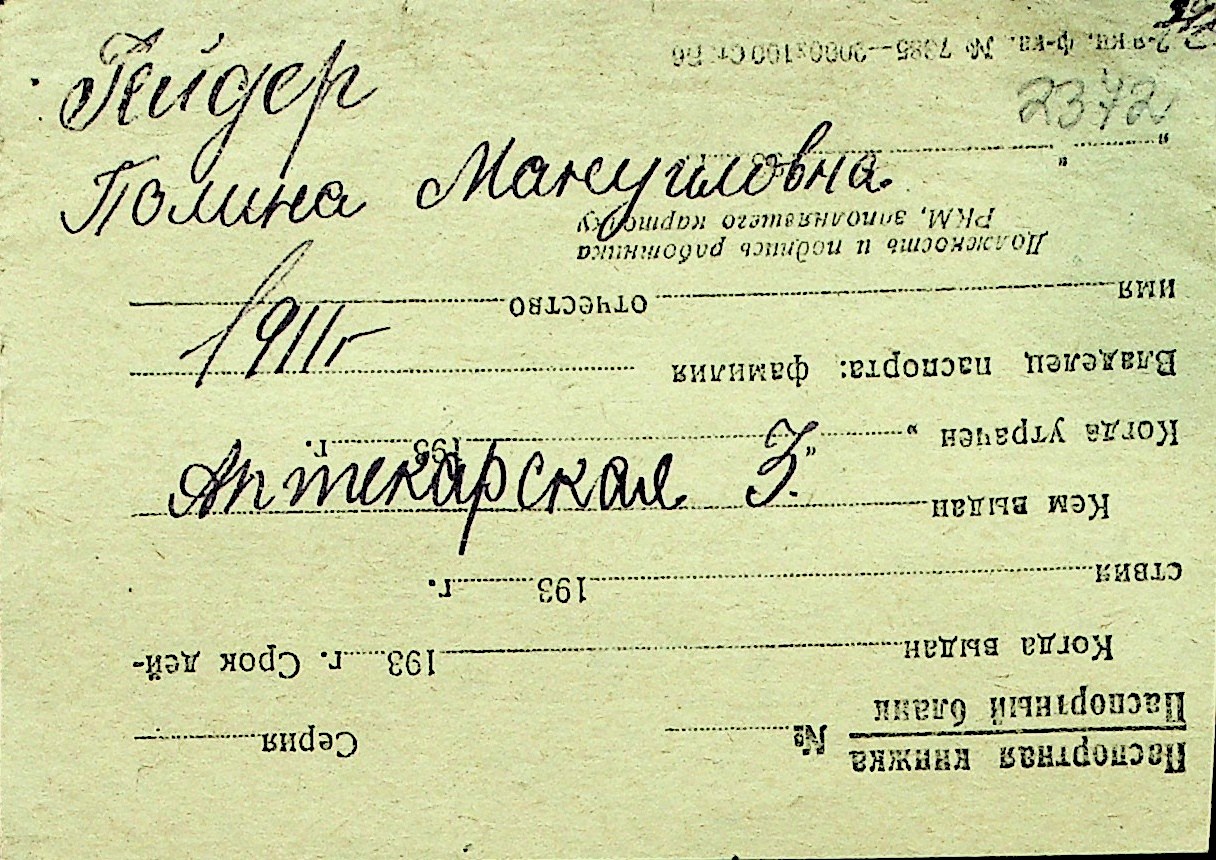 Гейдер
Полина Мануиловна
1911 г
Аптекарская 3.
2372
Паспортная книжка
Паспортный бланк
№ Серия
Когда выдан 193 г. Срок дей-
ствия 193 г.
Кем выдан
Когда утрачен „ “ 193 г.
Владелец паспорта: фамилия
имя отчество
Должность и подпись работника
РКМ, заполнявшего карточку
„ “ 193 г.
2-я кн. ф-ка. № 7385—2000х100 Ст. Б6